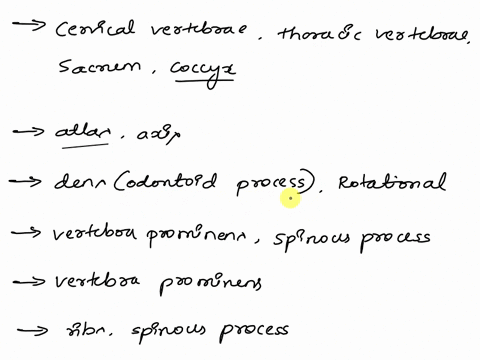 → Cervical vertebrae, thoracic vertebrae,
Sacrum, coccyx
→ atlas, axis
→ dens (odontoid process), Rotational
→ vertebra prominens, spinous process
→ vertebra prominens
→ ribs, spinous process